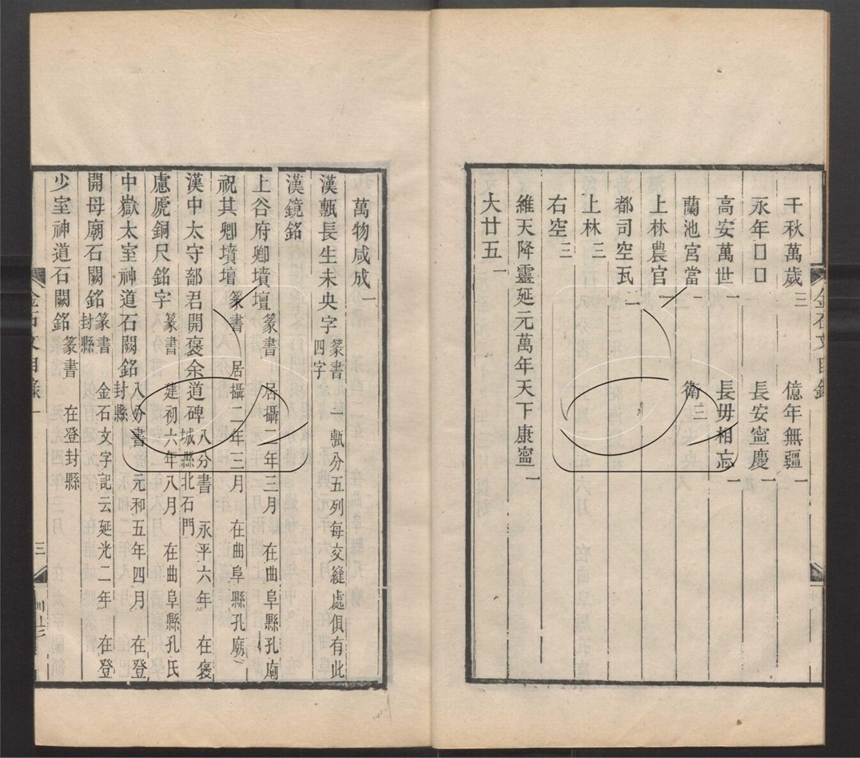 千秋萬歲三 億年無疆一
永年囗囗 長安寧慶一
高安萬世一 長毋相忘一
蘭池宮當一 衛三
上林農官一
都司空瓦一
上林三
右空三
維天降靈延元萬年天下康寧一
大廿五一
萬物咸成一
漢甎長生未央字篆書 一甎分五列每交縫處俱有此四字
漢鏡銘
上谷府卿墳壇篆書 居攝二年三月 在曲阜縣孔廟
祝其卿墳壇篆書 居攝二年三月 在曲阜縣孔廟
漢中太守鄐君開褒余道碑八分書 永平六年 在褒城縣北石門
慮俿銅尺銘字篆書 建初六年八月 在曲阜縣孔氏
中嶽太室神道石闕銘八分書 元和五年四月 在登封縣
開母廟石闕銘篆書 金石文字記云延光二年 在登封縣
少室神道石闕銘篆書 在登封縣
金石文字目錄一
三